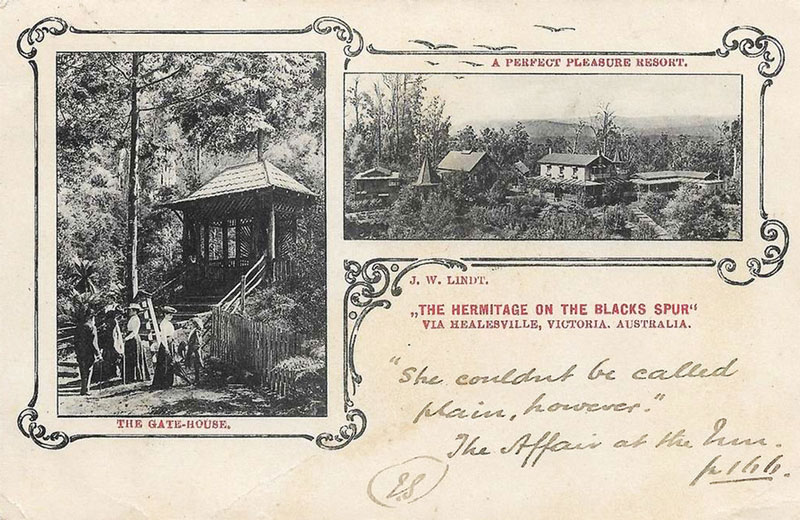 A PERFECT PLEASURE RESORT.
THE GATE-HOUSE.
J. W. LINDT.
„THE HERMITAGE ON THE BLACKS SPUR“
VIA HEALESVILLE, VICTORIA. AUSTRALIA.
"She couldnt be called
plain, however."
The Affair at the Inn.
p 166.
E.S